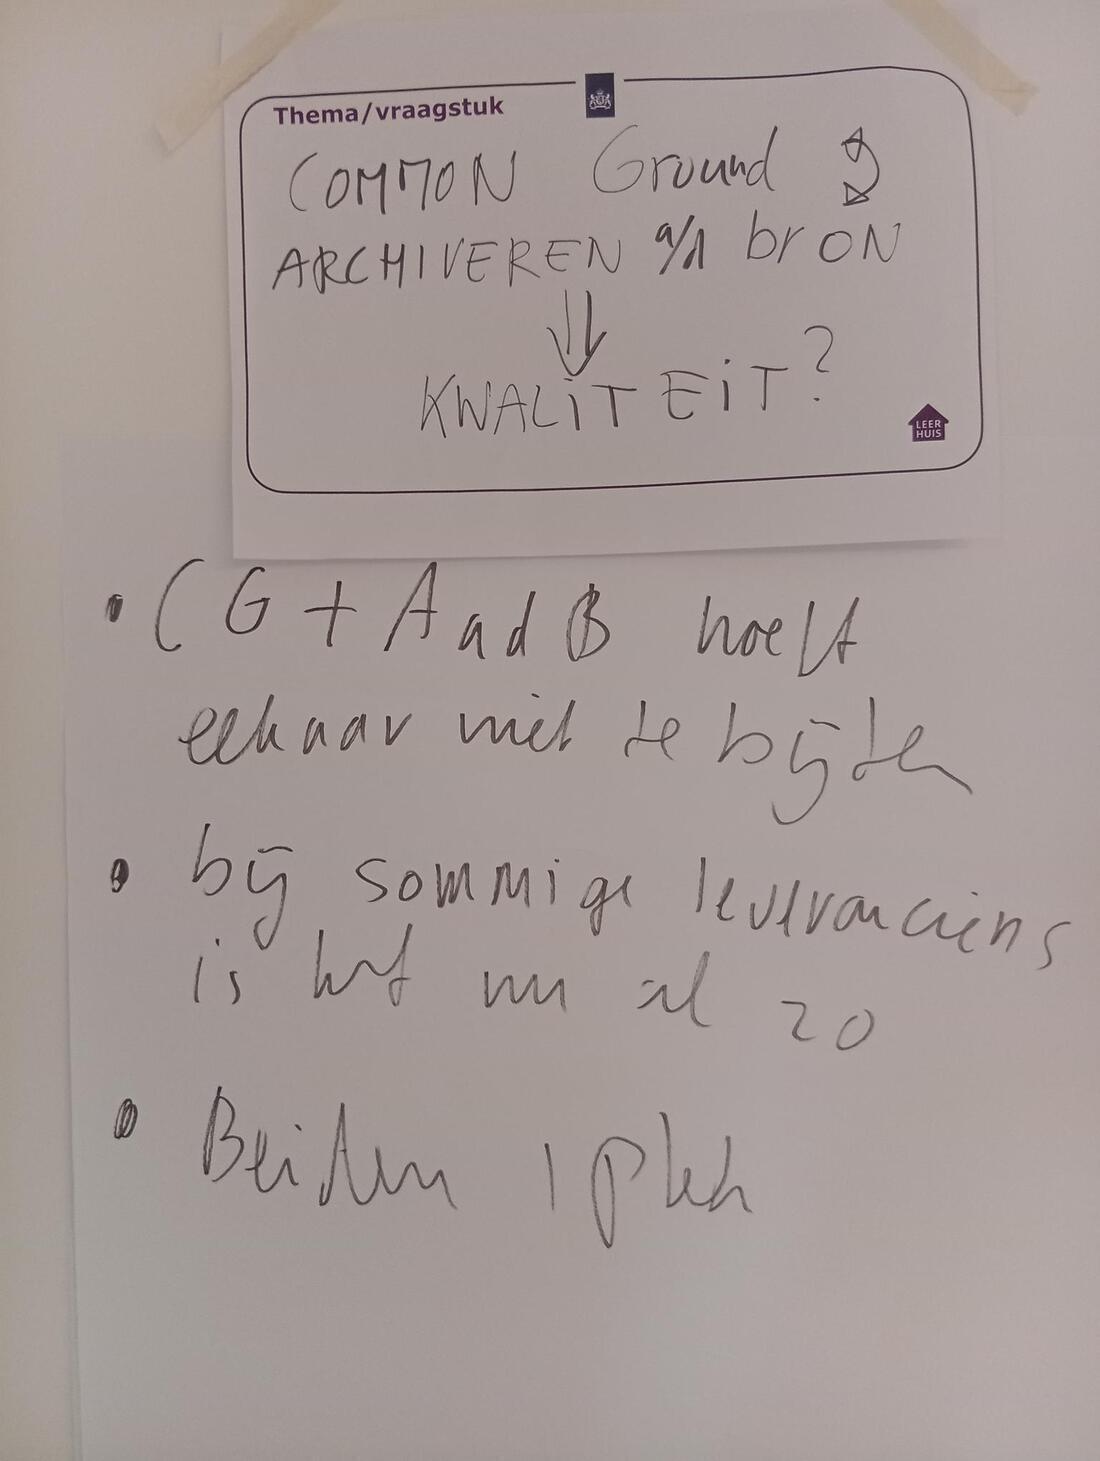 Thema/vraagstuk
COMMON Ground
ARCHIVEREN a/d brON
KWALiTEiT?
LEER
HUIS
• CG + A ad B hoeft
elkaar niet te bijten
• bij sommige leveranciers
is het nu al zo
• Beiden 1 plek